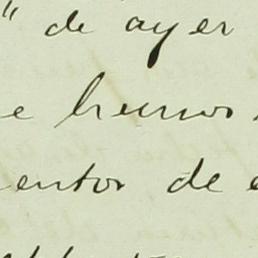 " de ayer
e hemos
entos de e